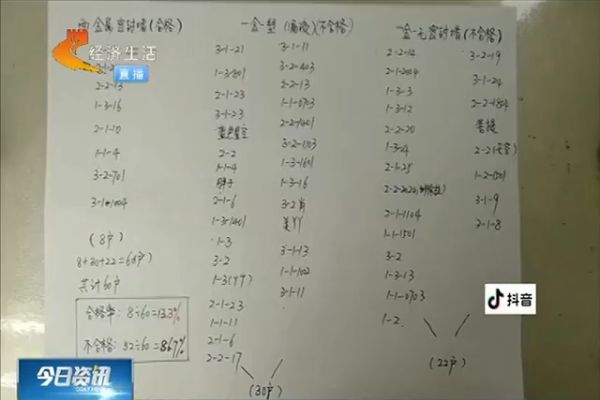 两金属密封墙(合格)
经济生活
直播
2-2-13
1-3-16
2-1-10
1-1-4
3-2-701
(8户)
8+30+22=60户)
共计60户
合格率:8÷60=13.3%
不合格:52÷60=86.7%
一金一塑(漏波)(不合格)
3-1-21
1-3-801
2-1-23
3-1-23
2-2
1-1-4
胖子
2-1-6
1-3-1401
1-3
3-2
2-1-23
1-1-11
2-1-6
2-2-17
3-1-11
3-2-403
2-2-13
1-1-0703
2-2-1401
3-2-1103
1-3-1601
1-3-16
3-1-13
1-1-1102
3-1-11
(30户)
一金一无密封墙(不合格)
2-2-14
2-1-2004
1-3-3
1-3-12
2-2-20
1-3-24
2-1-25
2-1-1104
1-1-1501
3-2
1-3-13
1-1-0703
1-2
3-2-19
3-1-24
2-2-1804
1-2-1501
3-1-9
2-1-8
(22户)
抖音
今日资讯